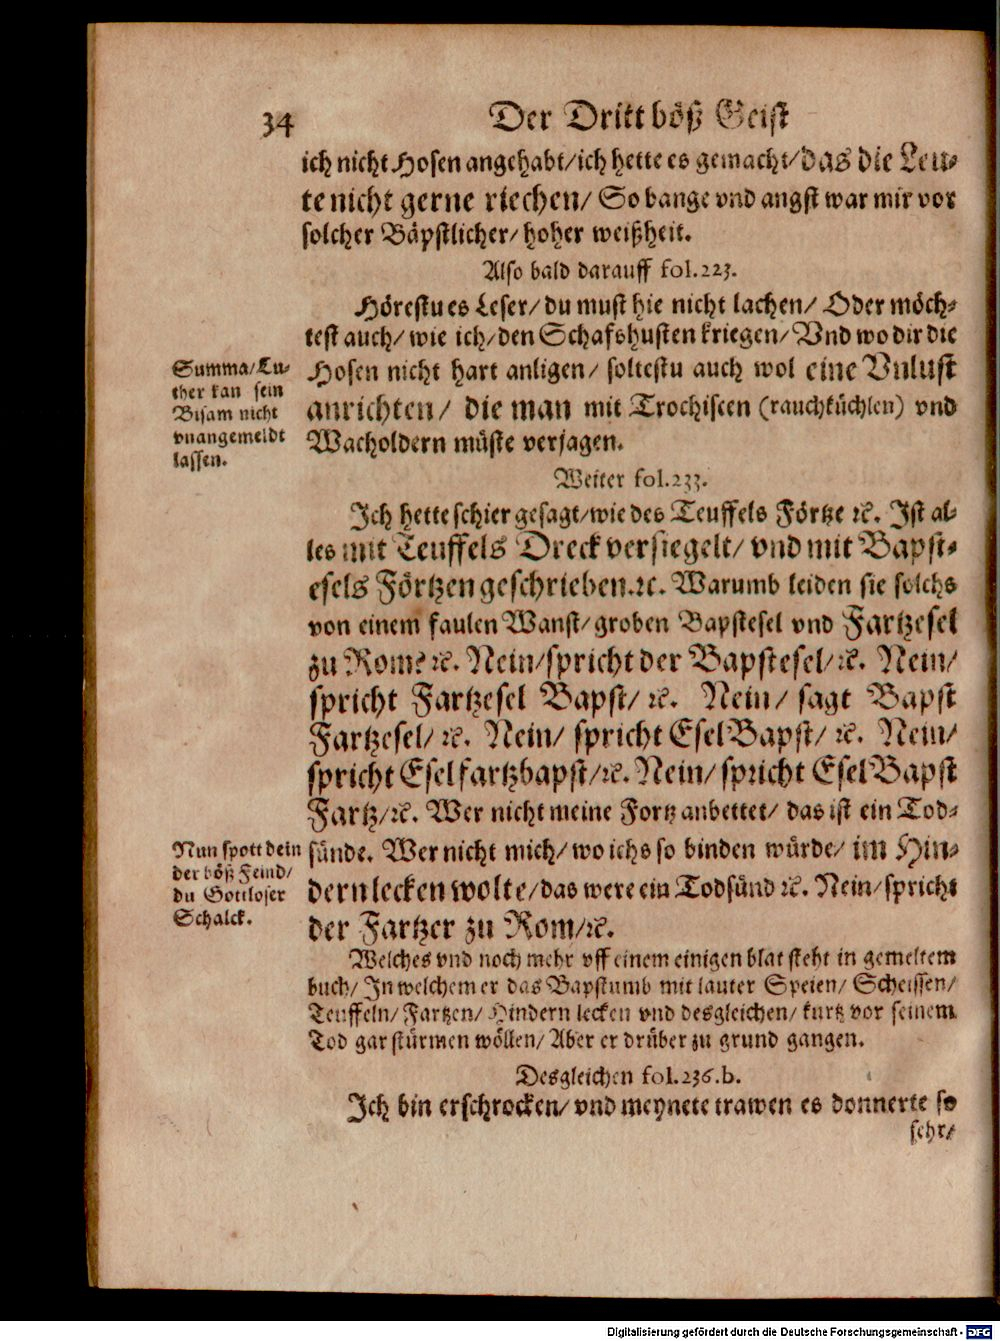 34
Der Dritt böß Geist
ich nicht Hosen angehabt/ich hette es gemacht/das die Leu-
te nicht gerne riechen/ So bange vnd angst war mir vor
solcher Bäpstlicher/ hoher weißheit.
Also bald darauff fol.223.
Hörestu es Leser/ du must hie nicht lachen/ Oder möch-
test auch/ wie ich/ den Schafshusten kriegen/ Vnd wo dir die
Summa/Lu-
ther kan sein
Bisam nicht
vnangemeldt
lassen.
Hosen nicht hart anligen/ soltestu auch wol eine Vnlust
anrichten/ die man mit Trochiscen (rauchküchlen) vnd
Wacholdern müste verjagen.
Weiter fol.233.
Ich hette schier gesagt/wie des Teuffels Förtze ꝛc. Ist al-
les mit Teuffels Dreck versiegelt/ vnd mit Bapst-
esels Förtzen geschrieben.ꝛc. Warumb leiden sie solchs
von einem faulen Wanst/ groben Bapstesel vnd Fartzesel
zu Rom? ꝛc. Nein/spricht der Bapstesel/ꝛc. Nein/
spricht Fartzesel Bapst/ ꝛc. Nein/ sagt Bapst
Fartzesel/ ꝛc. Nein/ spricht Esel Bapst/ ꝛc. Nein/
spricht Eselfartzbapst/ꝛc. Nein/ spricht Esel Bapst
Fartz/ꝛc. Wer nicht meine Fortz anbettet/ das ist ein Tod-
Nun spott dein
der böß Feind/
du Gottloser
Schalck.
sünde. Wer nicht mich/ wo ichs so binden würde/ im Hin-
dern lecken wolte/das were ein Todsünd ꝛc. Nein/ spricht
der Fartzer zu Rom/ꝛc.
Welches vnd noch mehr vff einem einigen blat steht in gemeltem
buch/ In welchem er das Bapstumb mit lauter Speien/ Scheissen/
Teuffeln/ Fartzen/ Hindern lecken vnd desgleichen/ kurtz vor seinem
Tod gar stürmen wöllen/ Aber er drüber zu grund gangen.
Desgleichen fol.236.b.
Ich bin erschrocken/ vnd meynete trawen es donnerte so
sehr/
Digitalisierung gefördert durch die Deutsche Forschungsgemeinschaft - DFG